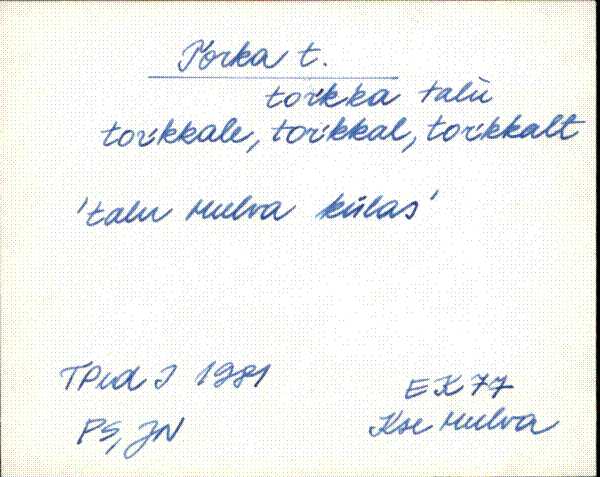 Torka t.
tor'kka talu
tor'kkale, tor'kkal, tor'kkalt
'talu Mulva külas'
TPed I 1981
PS, JN
EK 77
Kse Mulva